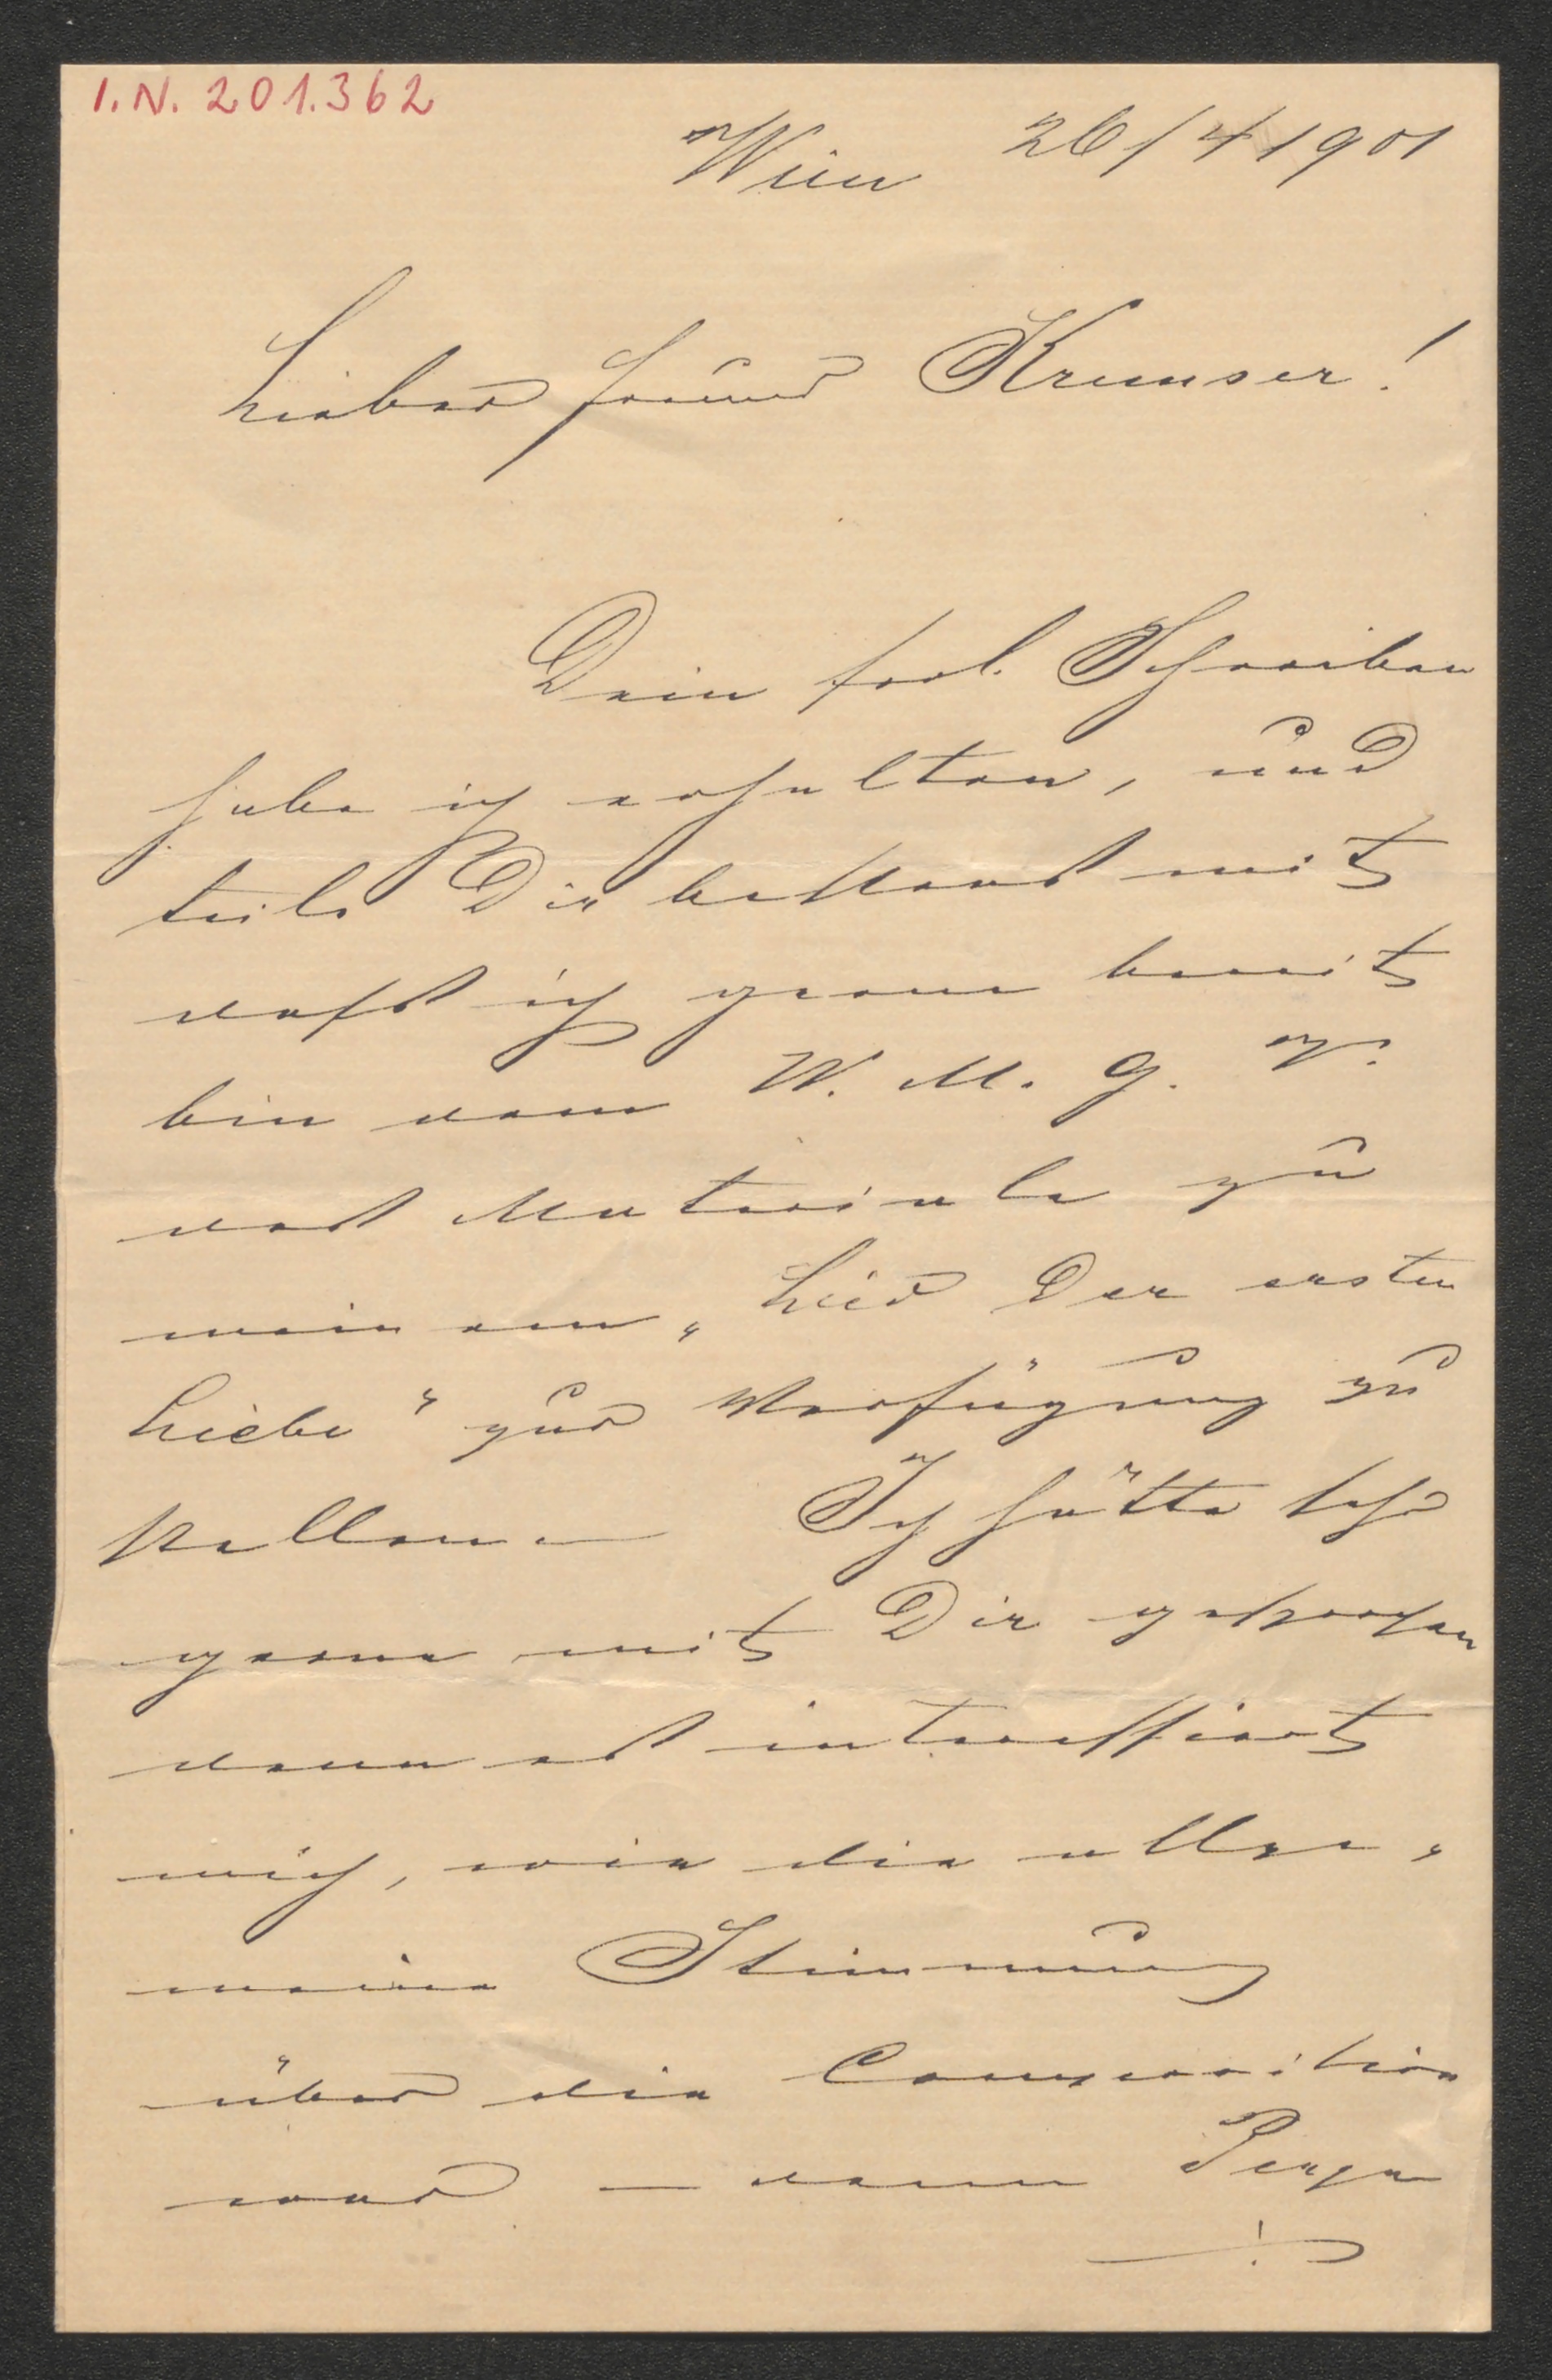 I.N. 201.362
Wien 26/4 1901
Lieber Freund Kremser!
Dein frdl. Schreiben
habe ich erhalten, und
teile Dir bestens mit
dass ich gerne bereit
bin dem W. M. G. V.
das Materiale zu
meinem „Lied der ersten
Liebe" zur Verfügung zu
stellen. — Ich hätte sehr
gerne mit Dir gesprochen
denn es interessiert
mich, wie die allge„
meine Stimmung
über die Composition
war — denn